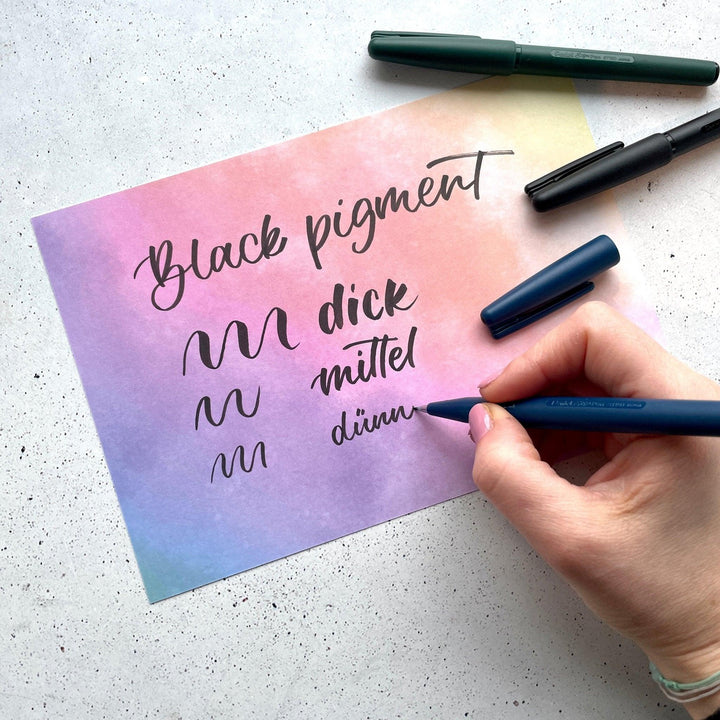 Black pigment
dick
mittel
dünn